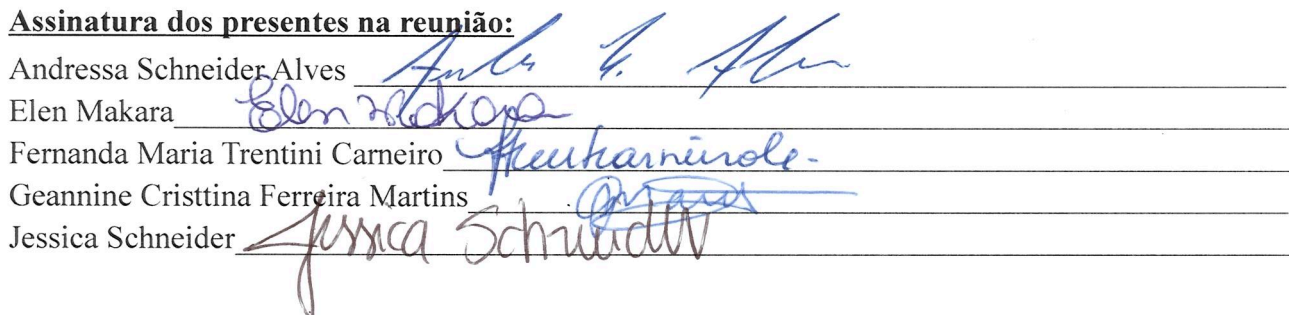 Assinatura dos presentes na reunião:
Andressa Schneider Alves
Elen Makara Elen Makara
Fernanda Maria Trentini Carneiro
Geannine Cristtina Ferreira Martins
Jessica Schneider Jessica Schneider